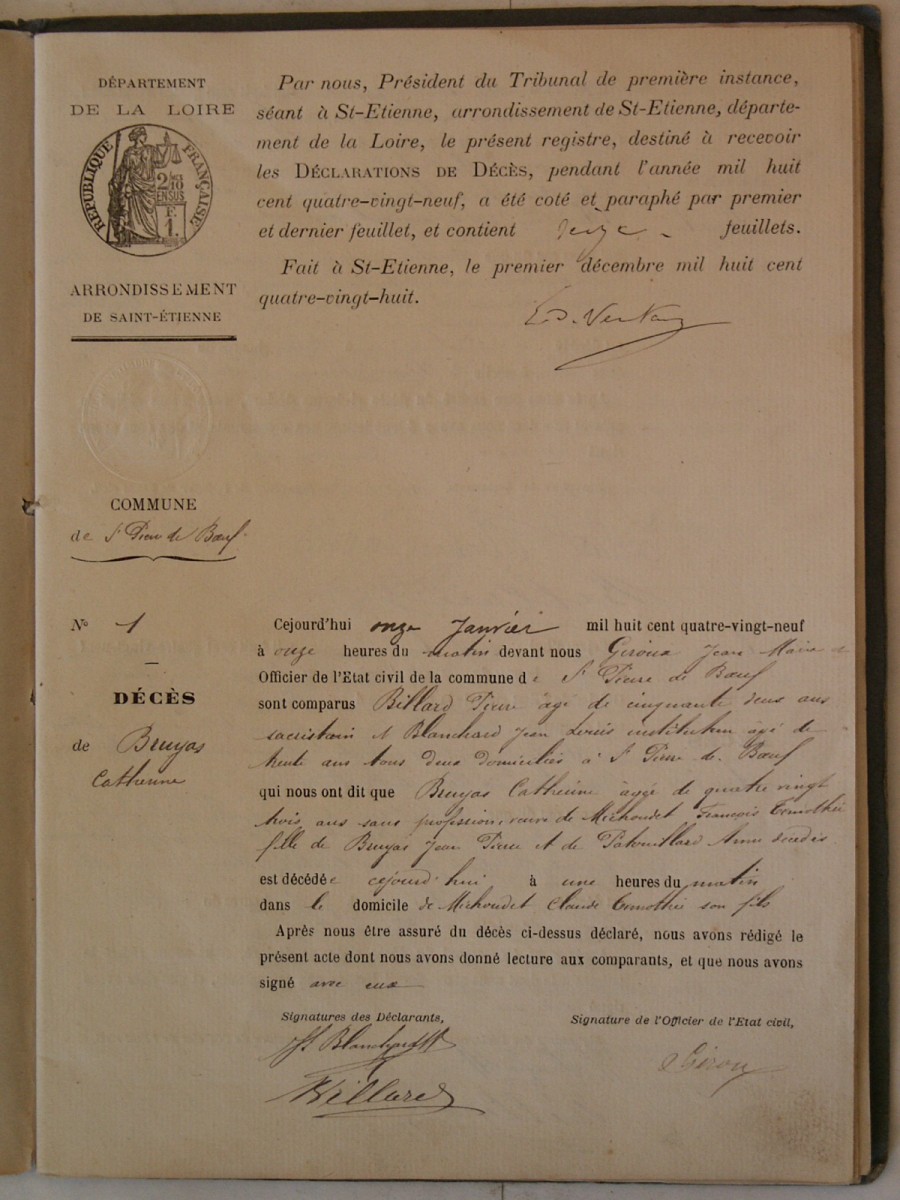 DÉPARTEMENT
DE LA LOIRE
RÉPUBLIQUE FRANÇAISE
2/10
EN SUS
F.
1.
ARRONDISSEMENT
DE SAINT-ÉTIENNE
Par nous, Président du Tribunal de première instance,
séant à St-Etienne, arrondissement de St-Etienne, départe-
ment de la Loire, le présent registre, destiné à recevoir
les DÉCLARATIONS DE DÉCÈS, pendant l'année mil huit
cent quatre-vingt-neuf, a été coté et paraphé par premier
et dernier feuillet, et contient feuillets.
Fait à St-Etienne, le premier décembre mil huit cent
quatre-vingt-huit.
COMMUNE
de St Pierre de Bœuf
N° 1
DÉCÈS
de Bruyas
Catherine
Cejourd'hui onze Janvier mil huit cent quatre-vingt-neuf
à onze heures du matin devant nous Giroux Jean Maire
Officier de l'Etat civil de la commune de St Pierre de Bœuf
sont comparus Billard Pierre âgé de cinquante deux ans
sacristain et Blanchard Jean Louis instituteur âgé de
trente ans tous deux domiciliés à St Pierre de Bœuf
qui nous ont dit que Bruyas Catherine âgée de quatre vingt
trois ans sans profession, veuve de Michoudet François Temothée
fille de Bruyas Jean Pierre et de Patouillard Anne décédés
est décédée cejourd'hui à une heures du matin
dans le domicile de Michoudet Claude Temothée son fils
Après nous être assuré du décès ci-dessus déclaré, nous avons rédigé le
présent acte dont nous avons donné lecture aux comparants, et que nous avons
signé avec eux
Signatures des Déclarants,
Signature de l'Officier de l'Etat civil,
Blanchard
Giroux
Billard